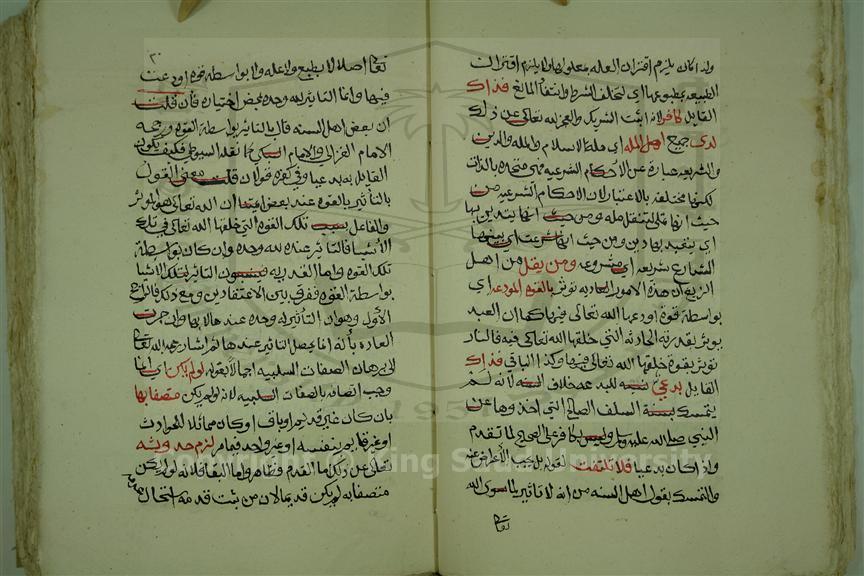 ولذا كان يلزم اقتران العله بمعلولها ولا يلزم اقتران
الطبيعه بمطبوعها اي لتخلف الشرط وانتفاء المانع فذاك
القايل كافر لانه اثبت الشريك والعجز لله تعالى عن ذلك
لدى جميع اهل المله اي ملة الاسلام والمله والدين
والشريعه عبارة عن الاحكام الشرعيه فهي متحده بالذات
لكنها مختلفه بالاعتبار لان الاحكام الشرعيه من
حيث انها تملى لتنقل مله ومن حيث انها يتدين بها
اي يتعبد بها دين ومن حيث انها شرعت اي بينها
الشارع شريعه اي مشروعه ومن يقل من اهل
الزيغ ان هذه الامور العاديه توثر بالقوه المودعه اي
بواسطة قوة اودعها الله تعالى فيها كما ان العبد
يوثر بقدرته الحادثه التي خلقها الله تعالى فيه فالنار
توثر بقوة خلقها الله تعالى فيها وكذا الباقي فذاك
القايل بدعي نسبه للبدعه خلاف السنه لانه لم
يتمسك بسنة السلف الصالح التي اخذوها عن
النبي صلى الله عليه وسلم وليس بكافر على الصحيح لما تقدم
واذا كان بدعيا فلا تلتفت لقوله بل يجب الاعراض عنه
والتمسك بقول اهل السنه من انه لا تاثير لما سوى الله
تعالى
٢٠
تعالى اصلا لا بطبع ولا عله ولا بواسطة قوة اودعت
فيها وانما التاثير لله وحده بمحض اختياره فان قلت
ان بعض اهل السنه قال بالتاثير بواسطة القوه ورجحه
الامام الغزالي والامام السبكي كما نقله السيوطي فكيف يكون
القايل به بدعيا وفي كفره قولان قلت معنى القول
بالتاثير بالقوة عند بعض ايمتنا ان الله تعالى هو الموثر
والفاعل بسبب تلك القوه التي خلقها الله تعالى في تلك
الاشيا فالتاثير عنده لله وحده وان كان بواسطة
تلك القوه واما القدريه فينسبون التاثير لتلك الاشيا
بواسطة القوه ففرق بين الاعتقادين ومع ذلك فالراجح
الاول وهو ان التاثير لله وحده عندها لا بها وان جرت
العادة بانه انما يحصل التاثير عندها ثم اشار رحمه الله تعالى
الى برهان الصفات السلبيه اجمالا بقوله لو لم يكن اي انما
وجب اتصافه بالصفات السلبيه لانه لو لم يكن متصفا بها
بان كان غير قديم او باق او كان مماثلا للحوادث
او غير قايم بنفسه او غير واحد فيما مر لزم حدوثه
تعالى عن ذلك اما القدم فظاهر واما البقا فلانه لو لم يكن
متصفا به لم يكن قديما لان من ثبت قدمه استحال عدمه
Copyright © King Saud University
1957